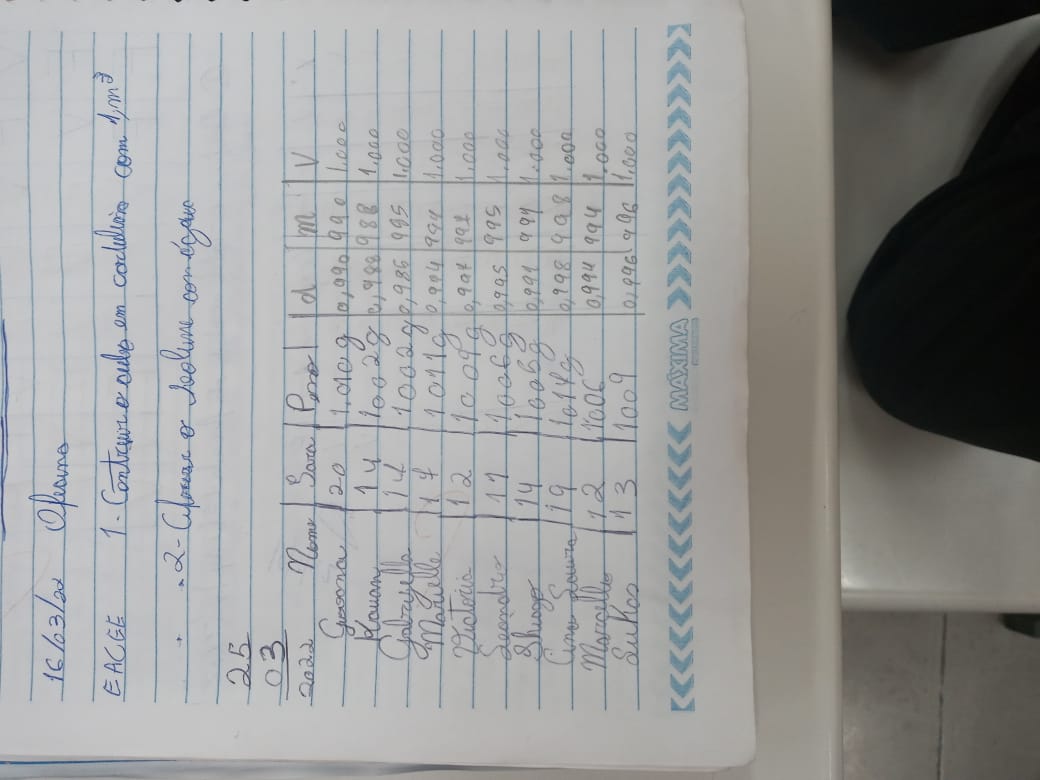 16/03/22
EACEE 1 - Construir o cubo em cartolina com 1,m³
2 - o volume com água
25
03
2022 Nome Peso d m V
20 1.010g 0,990 990 1.000
14 1002g 0,988 988 1.000
Gabryella 14 1002g 0,986 995 1.000
17 1011g 0,994 994 1.000
Victoria 12 1009g 0,997 1.000
Leandro 11 1006g 0,995 995 1.000
14 1006g 0,991 991 1.000
Ana Laura 19 1014g 0,998 998 1.000
Marcello 12 1006 0,994 994 1.000
Lukas 13 1009 0,996 996 1.000
MÁXIMA